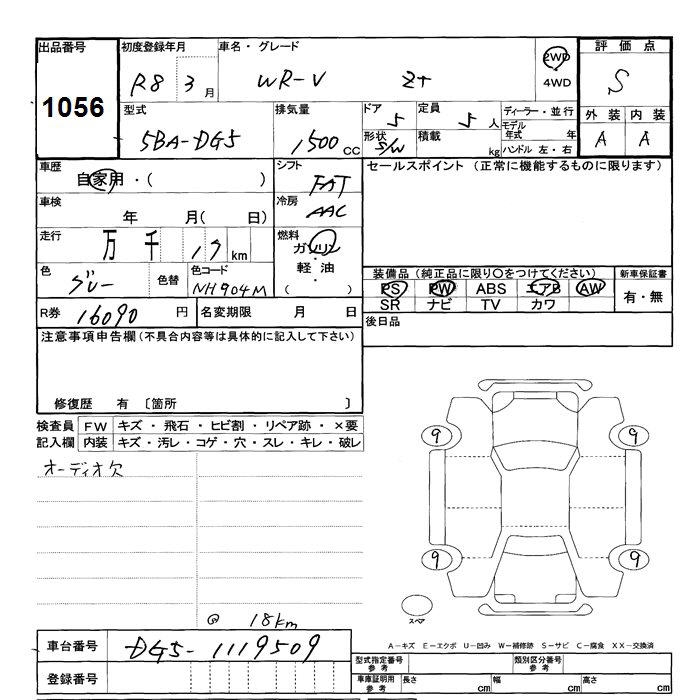 出品番号 初度登録年月 車名・グレード 2WD 評価点
1056 R8 3月 WR-V Z+ 4WD S
型式 排気量 ドア 定員 ディーラー・並行 外装 内装
5BA-DG5 1500cc 5 5人 モデル年式 年 A A
形状 S/W 積載 kg ハンドル 左・右
車歴 シフト セールスポイント(正常に機能するものに限ります)
自家用・( ) FAT
車検 冷房
年 月( 日) AAC
走行 燃料
万 千 17 km ガソリン
・
色 色替 色コード 軽油 装備品(純正品に限り〇をつけてください) 新車保証書
グレー NH904M ( ) PS PW ABS エアB AW 有・無
SR ナビ TV カワ
R券 16090円 名変期限 月 日 後日品
注意事項申告欄(不具合内容等は具体的に記入して下さい)
修復歴 有 〔箇所 〕
検査員 FW キズ・飛石・ヒビ割・リペア跡・×要
記入欄 内装 キズ・汚レ・コゲ・穴・スレ・キレ・破レ
オーディオ欠
9 9
9 9
スペア
@ 18km
A-キズ E-エクボ U-凹み W-補修跡 S-サビ C-腐食 XX-交換済
車台番号 DG5-1119509
型式指定番号 参考 類別区分番号 参考
登録番号
車庫証明用 参考 長さ cm 幅 cm 高さ cm